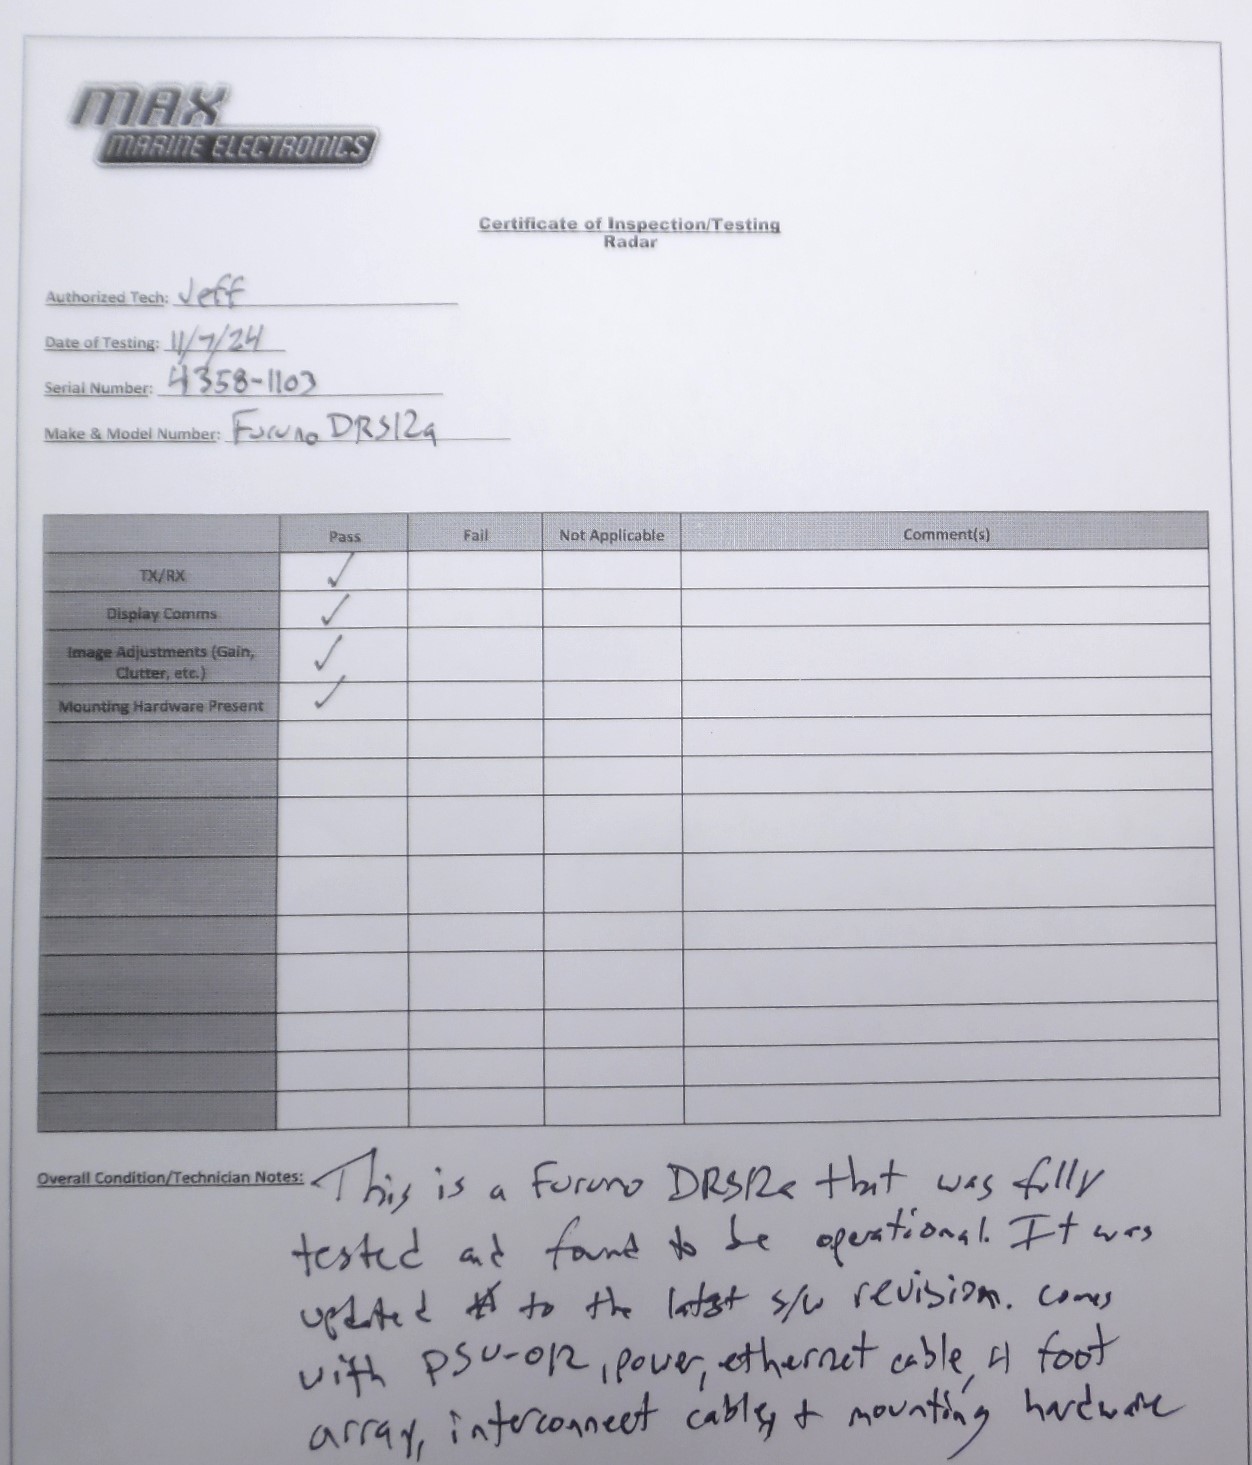 MAX
MARINE ELECTRONICS
Certificate of Inspection/Testing
Radar
Authorized Tech: Jeff
Date of Testing: 11/7/24
Serial Number: 4358-1103
Make & Model Number: Furuno DRS12a
Pass Fail Not Applicable Comment(s)
TX/RX ✓
Display Comms ✓
Image Adjustments (Gain,
Clutter, etc.) ✓
Mounting Hardware Present ✓
Overall Condition/Technician Notes: This is a Furuno DRS12a that was fully
tested and found to be operational. It was
updated to the latest s/w revision. comes
with PSU-012, power, ethernet cable, 4 foot
array, interconnect cable, + mounting hardware